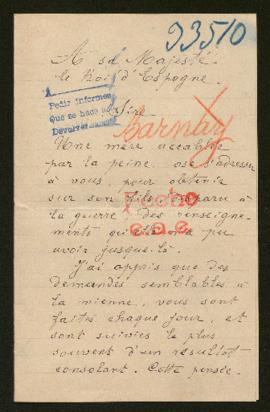 93510
A sa Majesté
le Roi d'Espagne.
Pedir informes
Que se hace
Devolver
Sire
Barnay
Une mère accablée
par la peine, ose s'adresser
à vous, pour obtenir
sur son fils disparu à
la guerre, des renseigne-
ments qu'elle n'a pu
avoir jusque-là.
Fecho
J'ai appris que des
demandes semblables à
la mienne, vous sont
faites chaque jour, et
sont suivies le plus
souvent d'un résultat
consolant. Cette pensée